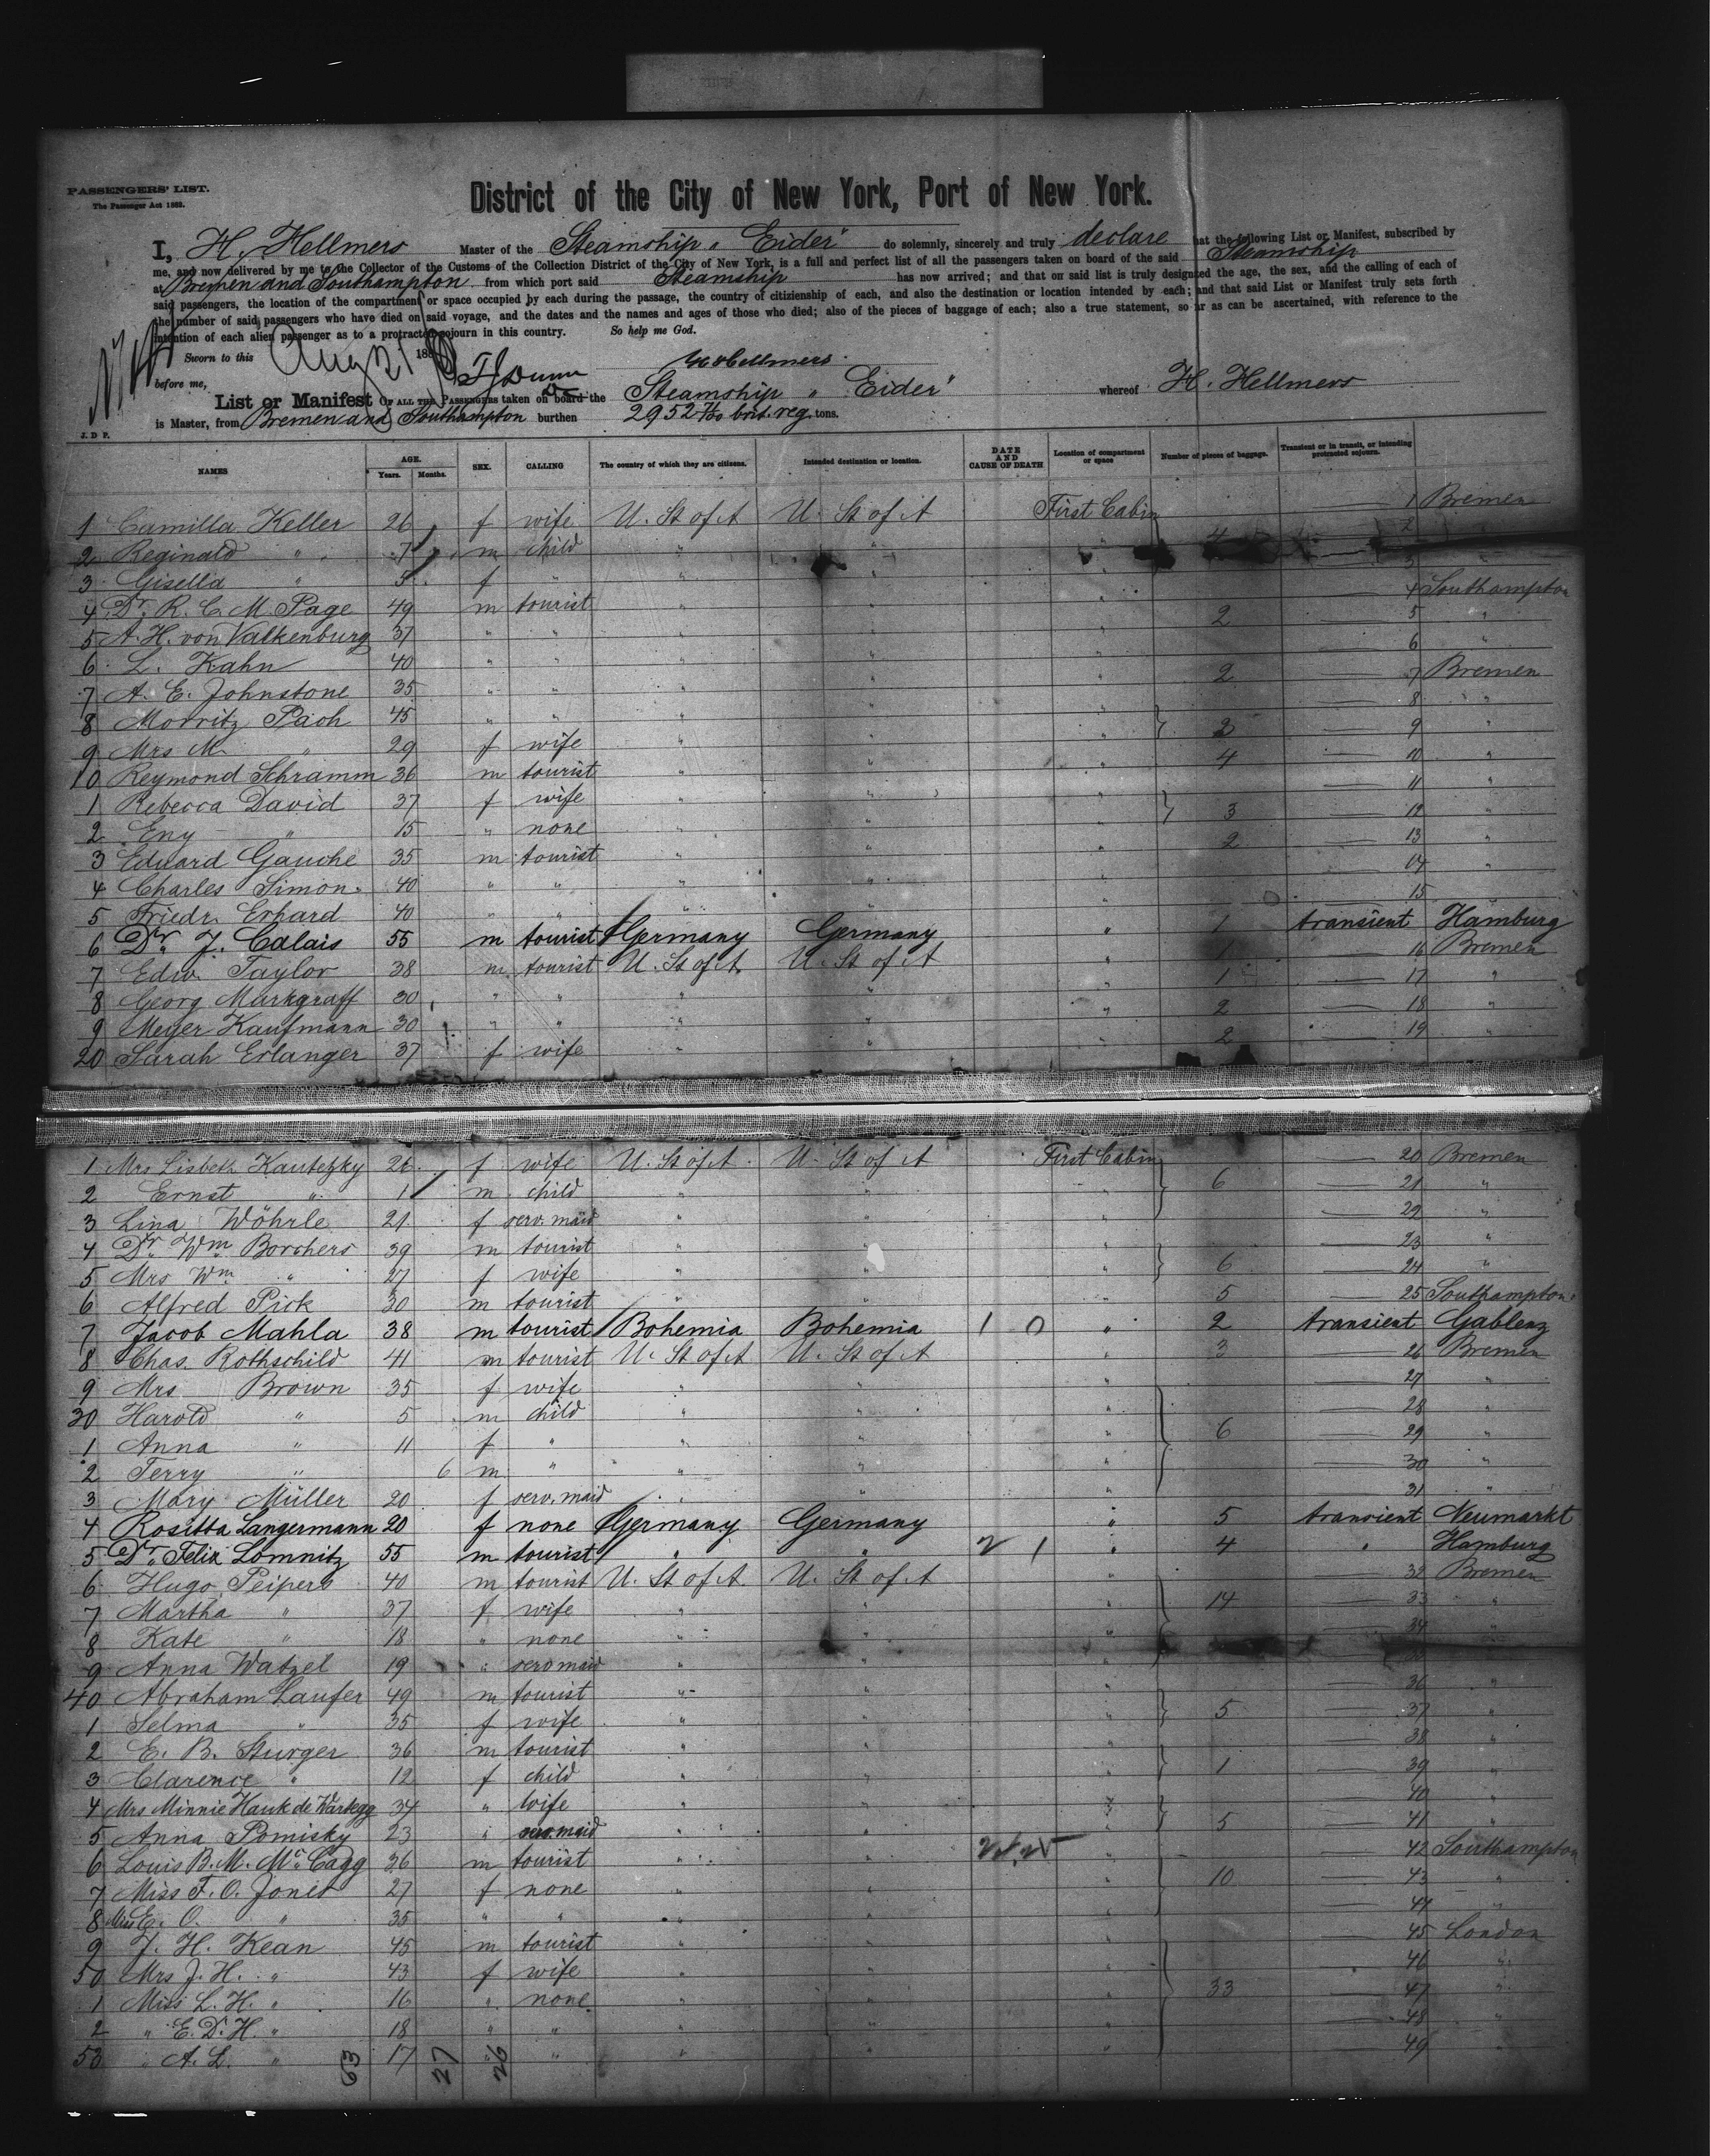 PASSENGERS' LIST.
The Passenger Act 1882.
District of the City of New York, Port of New York.
I, H. Hellmers Master of the Steamship „ Eider" do solemnly, sincerely and truly declare that the following List or Manifest, subscribed by
me, and now delivered by me to the Collector of the Customs of the Collection District of the City of New York, is a full and perfect list of all the passengers taken on board of the said Steamship
at Bremen and Southampton from which port said Steamship has now arrived; and that on said list is truly designated the age, the sex, and the calling of each of
said passengers, the location of the compartment or space occupied by each during the passage, the country of citizienship of each, and also the destination or location intended by each; and that said List or Manifest truly sets forth
the number of said passengers who have died on said voyage, and the dates and the names and ages of those who died; also of the pieces of baggage of each; also a true statement, so far as can be ascertained, with reference to the
intention of each alien passenger as to a protracted sojourn in this country. So help me God.
Sworn to this Aug 21 188
before me, H Hellmers
List or Manifest OF ALL THE PASSENGERS taken on board the Steamship „ Eider" whereof H. Hellmers
is Master, from Bremen and Southampton burthen 2952 brit. reg. tons.
J. D P.
NAMES AGE. Years. Months. SEX. CALLING The country of which they are citizens. Intended destination or location. DATE AND CAUSE OF DEATH Location of compartment or space Number of pieces of baggage. Transient or in transit, or intending protracted sojourn.
1 Camilla Keller 26 f wife U. St of A U. St of A First Cabin — 1 Bremen
2 Reginald " 7 m child " " " 4 — 2
3 Gisella " 5 f " " " " — 3 "
4 Dr. R. C. M. Page 49 m tourist " " " — 4 Southampton
5 A. H. von Valkenburg 37 " " " " " 2 — 5 "
6 L. Kahn 40 " " " " " — 6 "
7 A. E. Johnstone 35 " " " " " 2 — 7 Bremen
8 Morritz Pach 45 " " " " " — 8 "
9 Mrs M. " 29 f wife " " " 2 — 9 "
10 Reymond Schramm 36 m tourist " " " 4 — 10 "
1 Rebecca David 37 f wife " " " — 11 "
2 Eny " 15 " none " " " 3 — 12 "
3 Eduard Gauche 35 m tourist " " " 2 — 13 "
4 Charles Simon 40 " " " " " — 14 "
5 Friedr. Erhard 40 " " " " — 15
6 Dr. J. Calais 55 m tourist Germany Germany " 1 transient Hamburg
7 Edw. Taylor 38 m tourist U. St of A. U. St of A " 1 — 16 Bremen
8 Georg Markgraff 30 " " " " " 1 — 17 "
9 Meyer Kaufmann 30 " " " " " 2 — 18 "
20 Sarah Erlanger 37 f wife " " " 2 — 19 "
1 Mrs Lisbeth Kautetzky 26 f wife U. St of A U. St of A First Cabin — 20 Bremen
2 Ernst " 1 m child " " " 6 — 21 "
3 Lina Wöhrle 21 f serv. maid " " " — 22 "
4 Dr. Wm Borchers 39 m tourist " " " — 23 "
5 Mrs Wm. " 27 f wife " " " 6 — 24 "
6 Alfred Pick 30 m tourist " " " 5 — 25 Southampton
7 Jacob Mahla 38 m tourist Bohemia Bohemia 1 0 " 2 transient Gablenz
8 Chas. Rothschild 41 m tourist U. St of A U. St of A " 3 — 26 Bremen
9 Mrs Brown 35 f wife " " " — 27 "
30 Harold " 5 m child " " " — 28
1 Anna " 11 f " " " " 6 — 29 "
2 Terry " 6 m " " " " — 30 "
3 Mary Müller 20 f serv. maid " " — 31 "
4 Rositta Langermann 20 f none Germany Germany " 5 transient Neumarkt
5 Dr. Felix Lomnitz 55 m tourist " " 2 1 " 4 " Hamburg
6 Hugo Peipers 40 m tourist U. St of A. U. St of A " — 32 Bremen
7 Martha " 37 f wife " " " 14 — 33 "
8 Kate " 18 " none " " " — 34 "
9 Anna Watzel 19 " serv maid " " "
40 Abraham Laufer 49 m tourist " " " — 36 "
1 Selma " 35 f wife " " " 5 — 37 "
2 E. B. Sturger 36 m tourist " " " — 38 "
3 Clarence " 12 f child " " " 1 — 39 "
4 Mrs Minnie Hauk de Wartegg 34 " wife " " " — 40 "
5 Anna Pomisky 23 " serv. maid " " " 5 — 41 "
6 Louis B. M. Mc. Cagg 26 m tourist " " " — 42 Southampton
7 Miss F. O. Jones 27 f none " " " 10 — 43 "
8 Miss E. O. " 35 " " " " " — 44 "
9 J. H. Kean 45 m tourist " " " — 45 London
50 Mrs J. H. " 43 f wife " " " — 46 "
1 Miss L. H. " 16 " none " " " 33 — 47 "
2 " E. D. H. " 18 " " " " " — 48 "
53 " A. L. " 17 " " " " " — 49 "
63 27 26